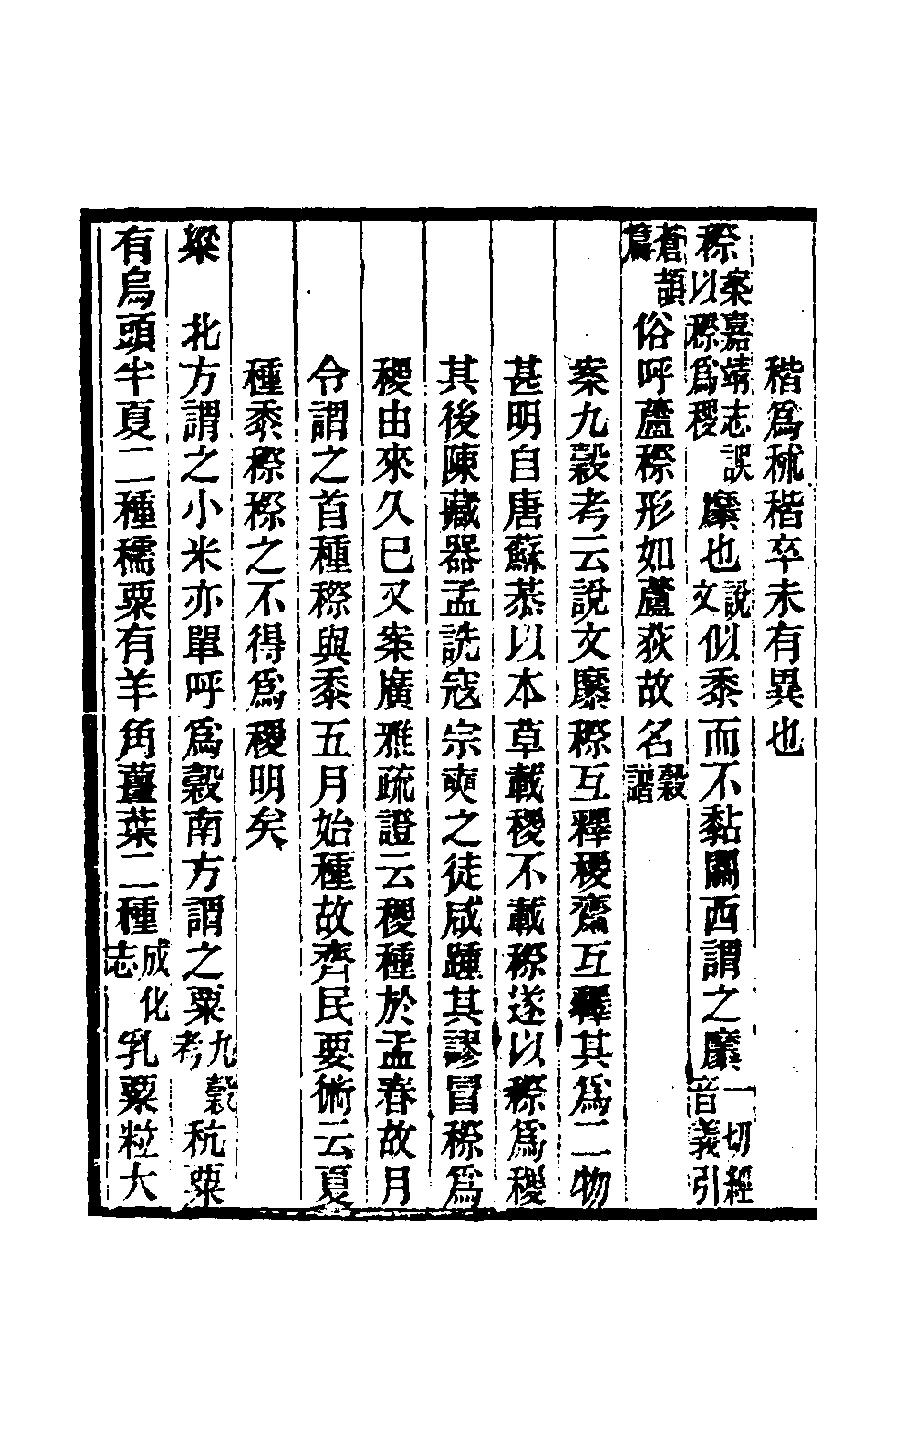 稭爲秫稭卒未有異也
穄案嘉靖志誤以穄爲稷穈也說文似黍而不黏關西謂之穈一切經音義引
蒼頡篇俗呼蘆穄形如蘆荻故名穀譜
案九穀考云說文穈穄互釋稷齋互釋其爲二物
甚明自唐蘇恭以本草載稷不載穄遂以穄爲稷
其後陳藏器孟詵寇宗奭之徒咸踵其謬冒穄爲
稷由來久已又案廣雅疏證云稷種於孟春故月
令謂之首種穄與黍五月始種故齊民要術云夏
種黍穄穄之不得爲稷明矣
粱　北方謂之小米亦單呼爲穀南方謂之粟九穀考秔粟
有烏頭半夏二種穤粟有羊角薑葉二種成化志乳粟粒大